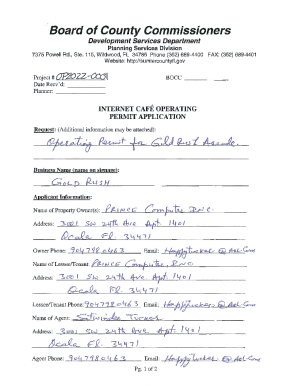 Board of County Commissioners
Development Services Department
Planning Services Division
7375 Powell Rd., Ste. 115, Wildwood, FL 34785 Phone (352) 689-4400 FAX: (352) 689-4401
Website: http://sumtercountyfl.gov
Project # OP2022-0003 BOCC:
Date Recv'd:
Planner:
INTERNET CAFÉ OPERATING
PERMIT APPLICATION
Request: (Additional information may be attached):
Operating Permit for Gold Rush Arcade
Business Name (name on signage):
GOLD RUSH
Applicant Information:
Name of Property Owner(s): PRINCE Computer INC.
Address: 3001 SW 24th Ave Apt. 1401
Ocala FL. 34471
Owner Phone: 9047980463 Email: HappyTucker @ Aol.Com
Name of Lessee/Tenant PRINCE Computer, INC
Address 3001 SW 24th Ave Apt 1401
Ocala Fl. 34471
Lessee/Tenant Phone 9047980463 Email: HappyTucker @ Aol.Com
Name of Agent: Satwinder
Address: 3001 SW 24th Ave. Apt 1401
Ocala FL. 34471
Agent Phone: 9047980463 Email HappyTucker @ Aol.Com
Pg. 1 of 2